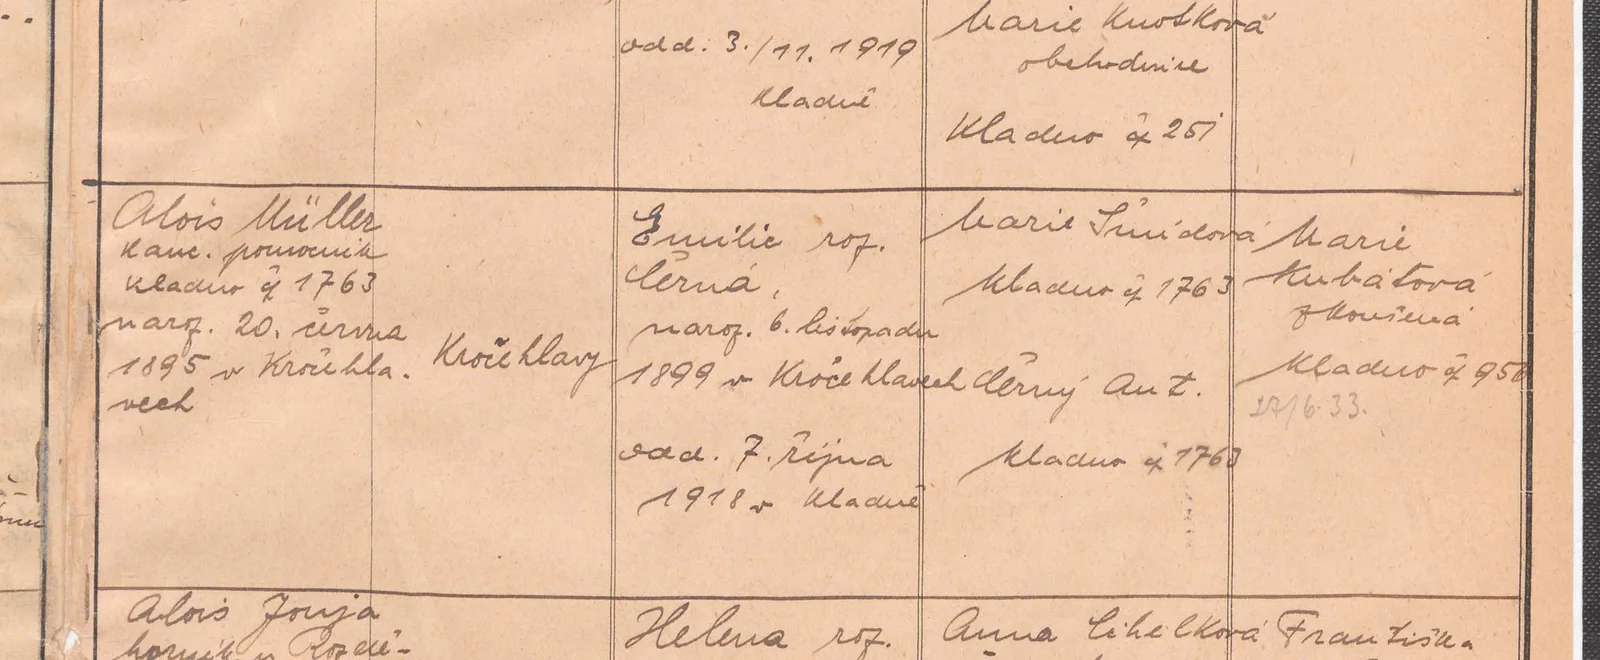 odd. 3./11. 1919
Kladně
Marie Knotková
obchodnice
Kladno čp 251
Alois Müller
kanc. pomocník
Kladno čp 1763
naroz. 20. června
1895 v Kročehla.
vech
Kročehlavy
Emilie roz.
Černá,
naroz. 6. listopadu
1899 v Kročehlavech
odd. 7. října
1918 v Kladně
Marie Šmídová
Kladno čp 1763
Černý Ant.
Kladno čp 1763
Marie
Kubátová
zkoušená
Kladno čp 950
27/6. 33.
Alois
horník v Rozdě-
Helena roz.
Anna Cihelková
Františka